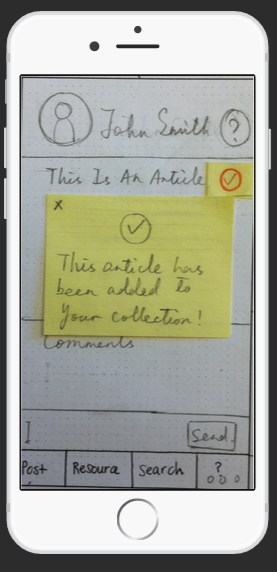 John Smith ?
This Is An Article
x
This article has
been added to
your collection!
Comments
Send
Post Resource Search ?